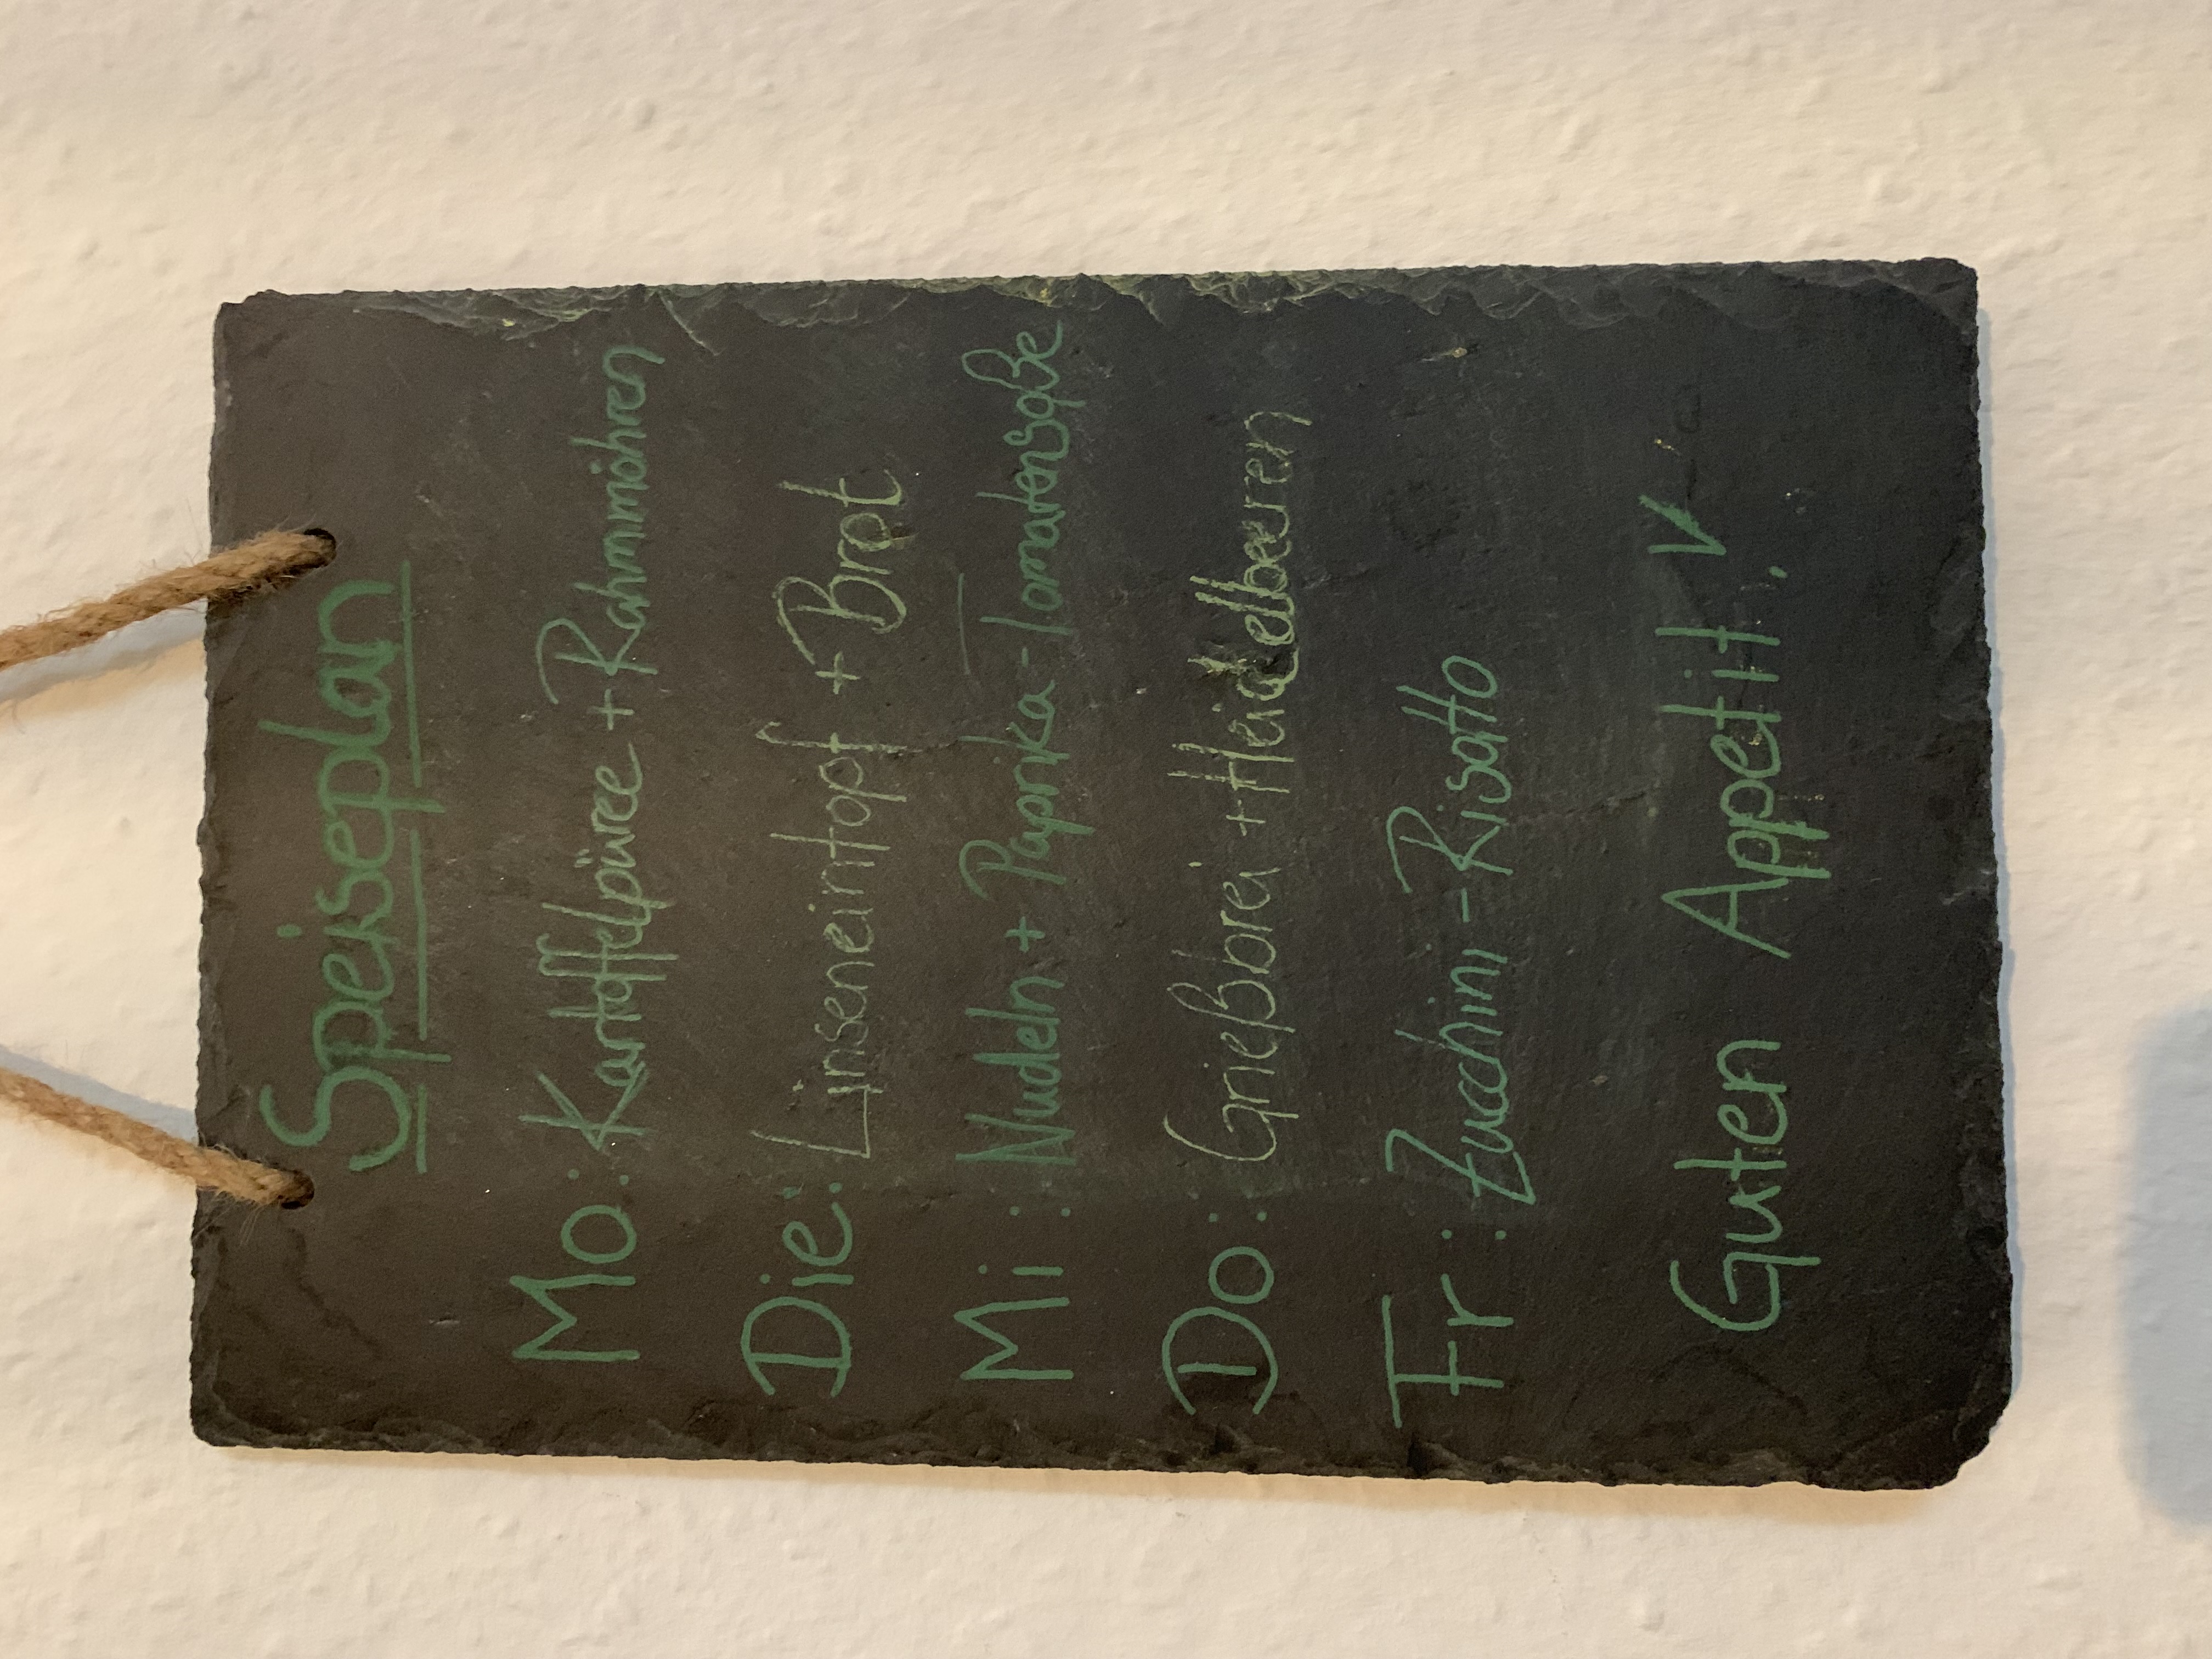 Speiseplan
Mo: Kartoffelpüree + Rahmmöhren
Die: Linseneintopf + Brot
Mi: Nudeln + Paprika-Tomatensoße
Do: Grießbrei + Heidelbeeren
Fr: Zucchini-Risotto
Guten Appetit.